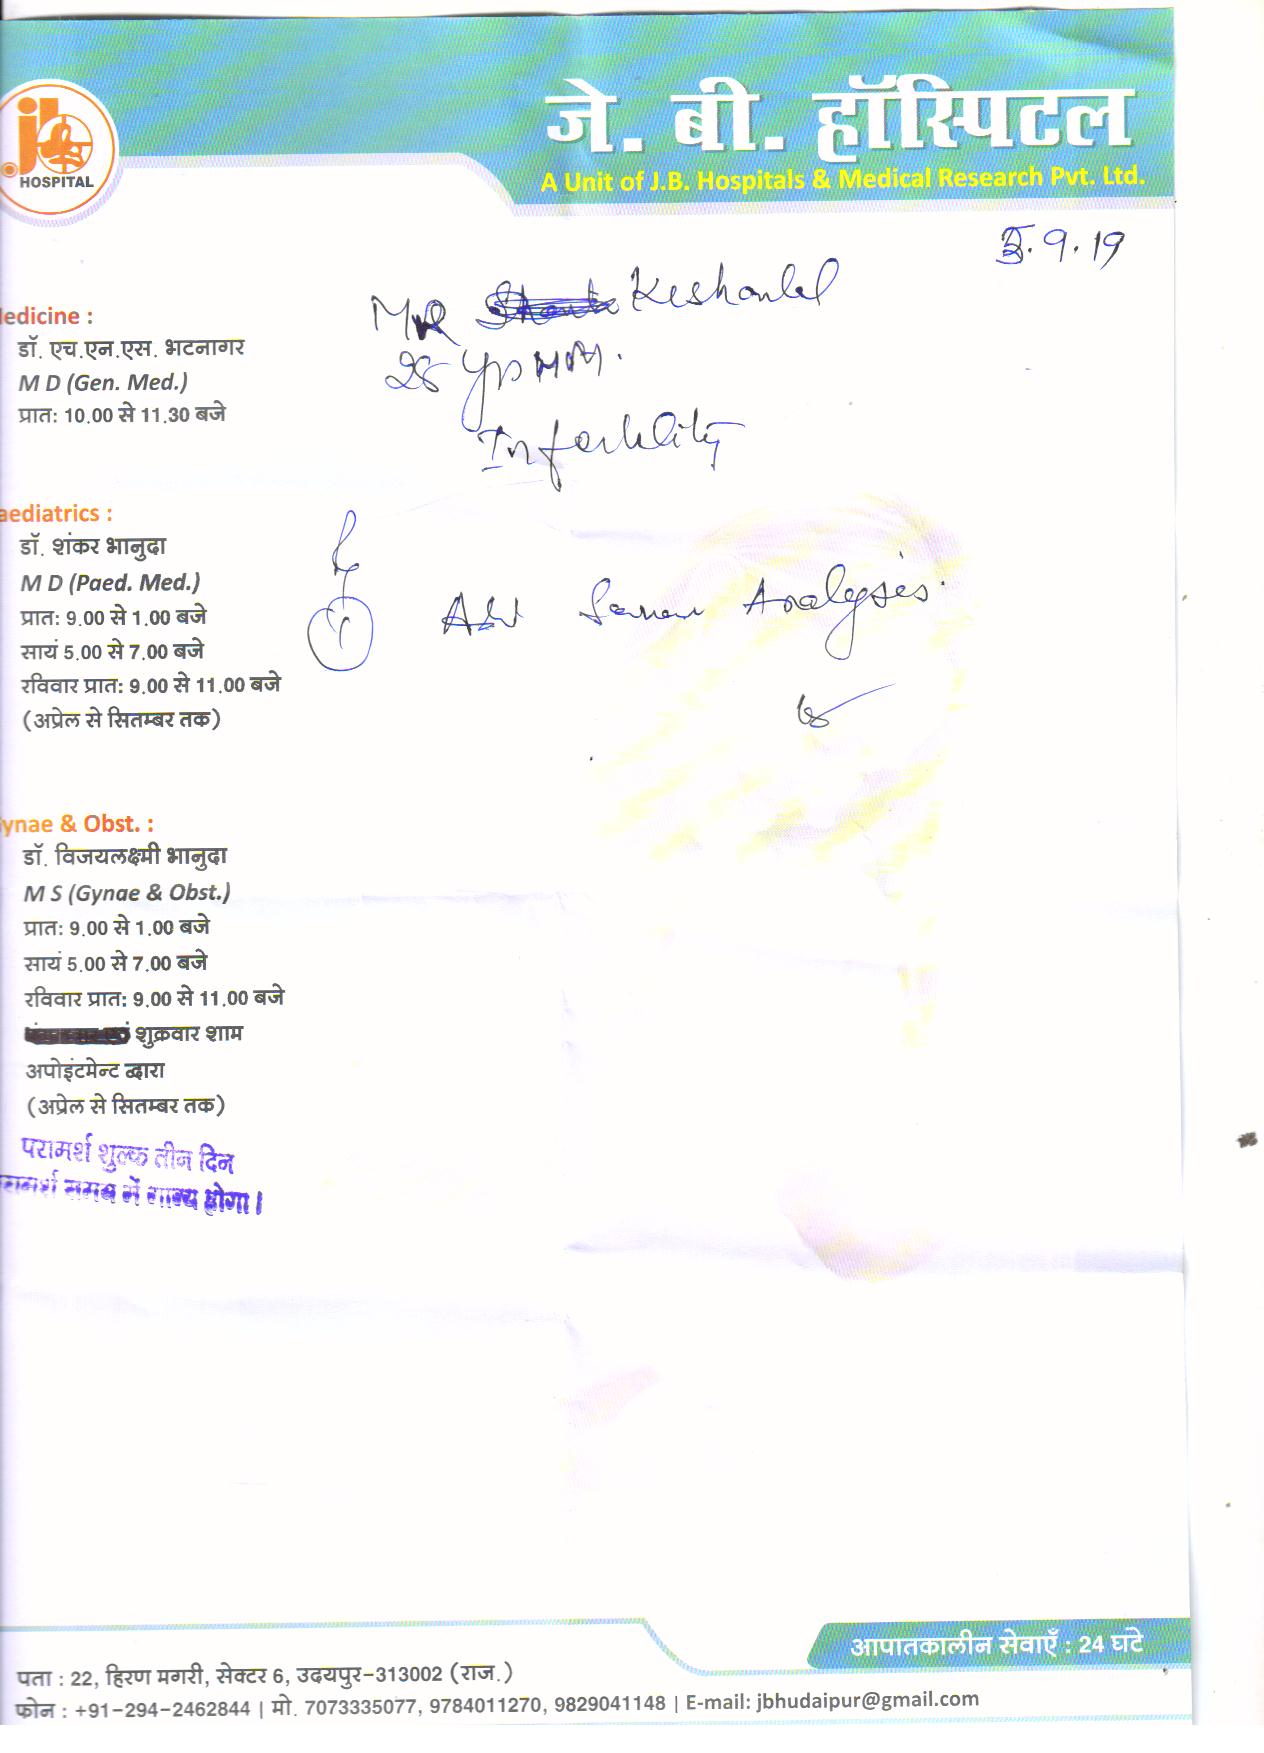 जे. बी. हॉस्पिटल
A Unit of J.B. Hospitals & Medical Research Pvt. Ltd.
HOSPITAL
.9.19
Mr Keshavlal
28 yrs
Infertility
Adv Semen Analysis.
edicine :
डॉ. एच.एन.एस. भटनागर
M D (Gen. Med.)
प्रात: 10.00 से 11.30 बजे
aediatrics :
डॉ. शंकर भानुदा
M D (Paed. Med.)
प्रात: 9.00 से 1.00 बजे
सायं 5.00 से 7.00 बजे
रविवार प्रात: 9.00 से 11.00 बजे
(अप्रेल से सितम्बर तक)
ynae & Obst. :
डॉ. विजयलक्ष्मी भानुदा
M S (Gynae & Obst.)
प्रात: 9.00 से 1.00 बजे
सायं 5.00 से 7.00 बजे
रविवार प्रात: 9.00 से 11.00 बजे
शुक्रवार शाम
अपोइंटमेन्ट द्वारा
(अप्रेल से सितम्बर तक)
परामर्श शुल्क तीन दिन
में मान्य होगा।
आपातकालीन सेवाएँ : 24 घंटे
पता : 22, हिरण मगरी, सेक्टर 6, उदयपुर-313002 (राज.)
फोन : +91-294-2462844 | मो. 7073335077, 9784011270, 9829041148 | E-mail: jbhudaipur@gmail.com